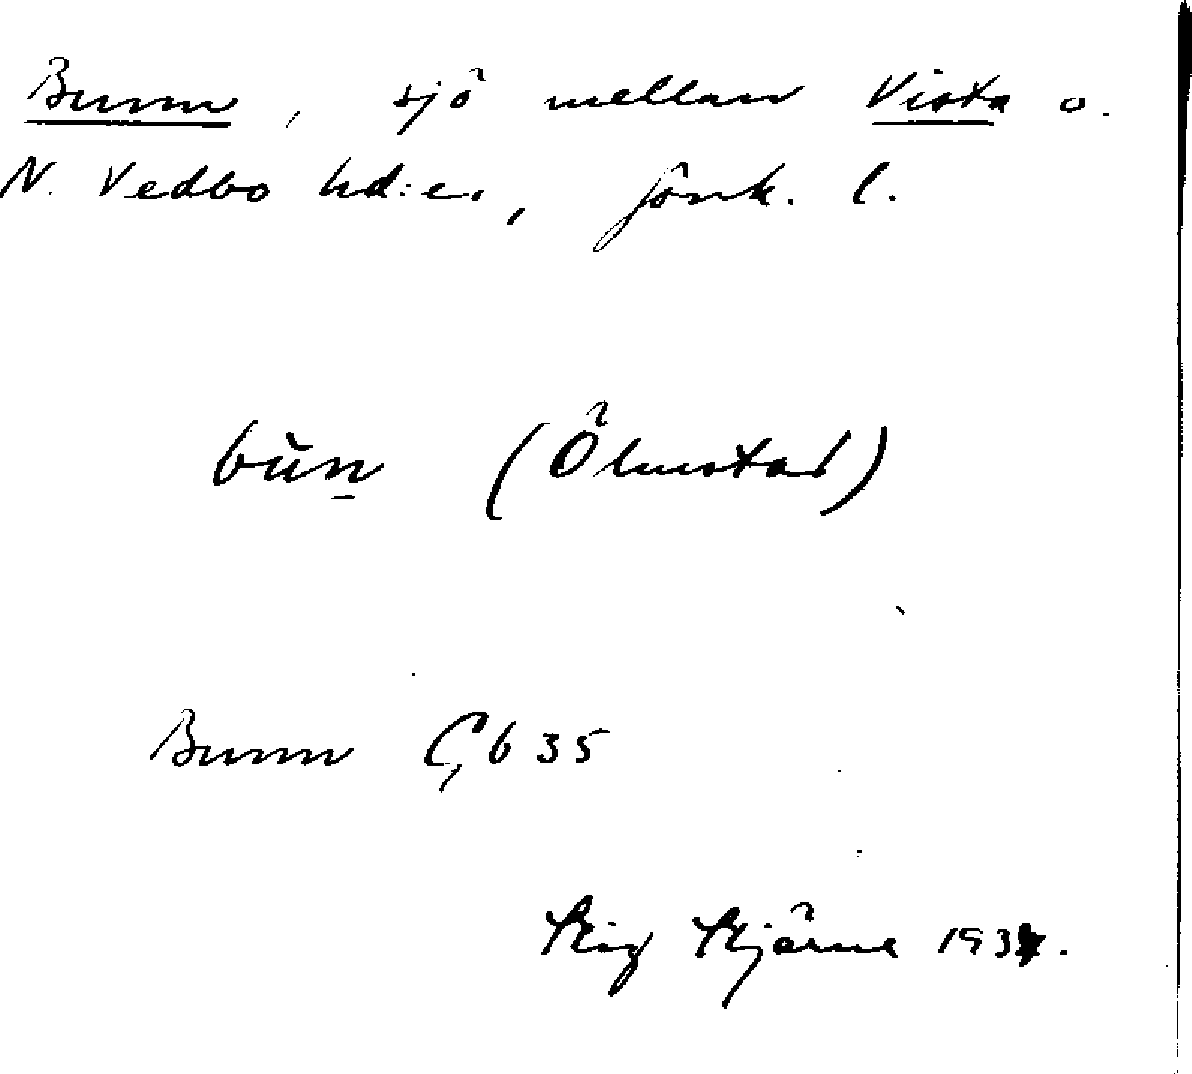 Bunn, sjö mellan Vista o.
N. Vedbo hd:er, Jönk. l.
bŭn̠ (Ölmstad)
Bunn Gb 35
Stig Stjärne